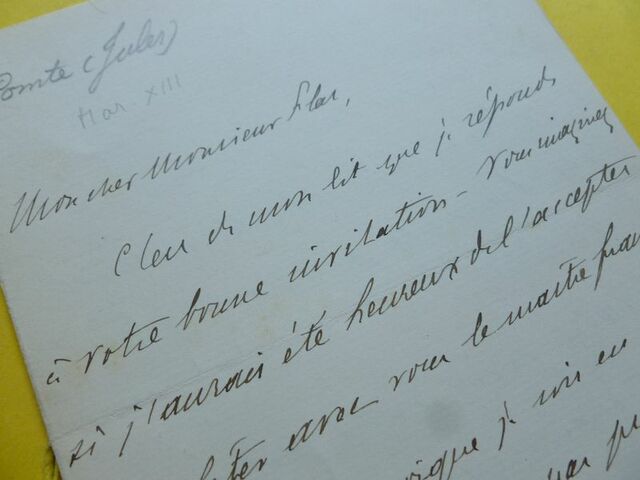 Comte (Jules)
Mar. XIII
Mon cher Monsieur
C'est de mon lit que je réponds
à votre bonne invitation - Vous imaginez
si j'aurais été heureux de l'accepter
avec vous le maître
je suis en
par